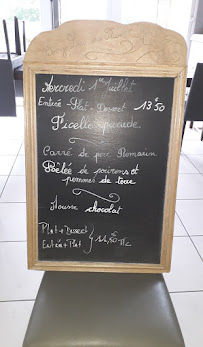 Mercredi 1er Juillet
Entrée - Plat - Dessert 13€50
Ficelle picarde
Carré de porc Romarin
Poêlée de poivrons et
pommes de terre
Mousse chocolat
Plat + Dessert
Entrée + Plat } 11,50 TTC